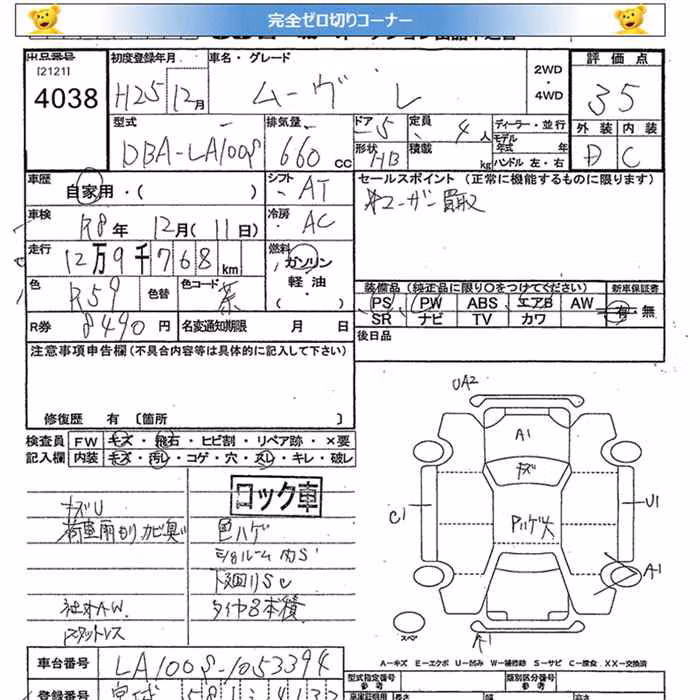 完全ゼロ切りコーナー
出品番号 初度登録年月 車名・グレード 2WD ・ 4WD 評価点
[2121]
4038 H25 12月 ムーヴ L 35
型式 排気量 ドア 5 定員 4人 ディーラー・並行 外装 内装
DBA-LA100S 660 cc 形状 HB 積載 kg モデル年式 年 ハンドル 左・右 D C
車歴 自家用・( ) シフト AT セールスポイント (正常に機能するものに限ります)
車検 R8年 12月(11日) 冷房 AC ユーザー買取
走行 12万9千768km 燃料 ガソリン 軽・油 ・( )
色 R59 色替 色コード 茶 装備品 (純正品に限り〇をつけてください) 新車保証書
PS PW ABS エアB AW 有・無
R券 8490円 名変通知期限 月 日 SR ナビ TV カワ
注意事項申告欄(不具合内容等は具体的に記入して下さい) 後日品
修復歴 有 〔箇所 〕
検査員 FW キズ・飛石・ヒビ割・リペア跡・×要
記入欄 内装 キズ・汚レ・コゲ・穴・スレ・キレ・破レ
ロック車
キズU
荷室雨もりカビ臭 色ハゲ
ルーム内S
下廻りSU
社外AW タイヤ8本積
スタットレス
UA2
A1
キズ
C1
U1
Pハゲ大
A1
スペア
A1
A-キズ E-エクボ U-凹み W-補修跡 S-サビ C-腐食 XX-交換済
車台番号 LA100S-1053394
型式指定番号 参考 類別区分番号 参考
登録番号 宮城 581 4132